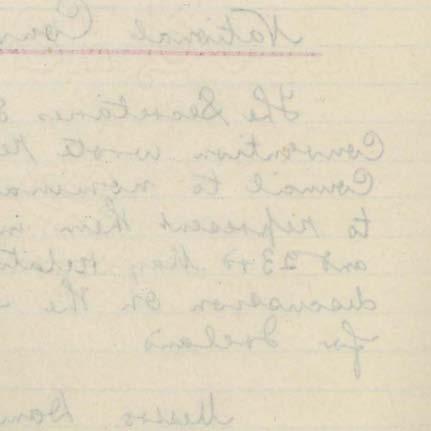 National Coun
The Secretaries
Convention wrote re
Council to nomina
to represent them in
and 23rd May, relati
discussion on the
for Ireland
Messrs